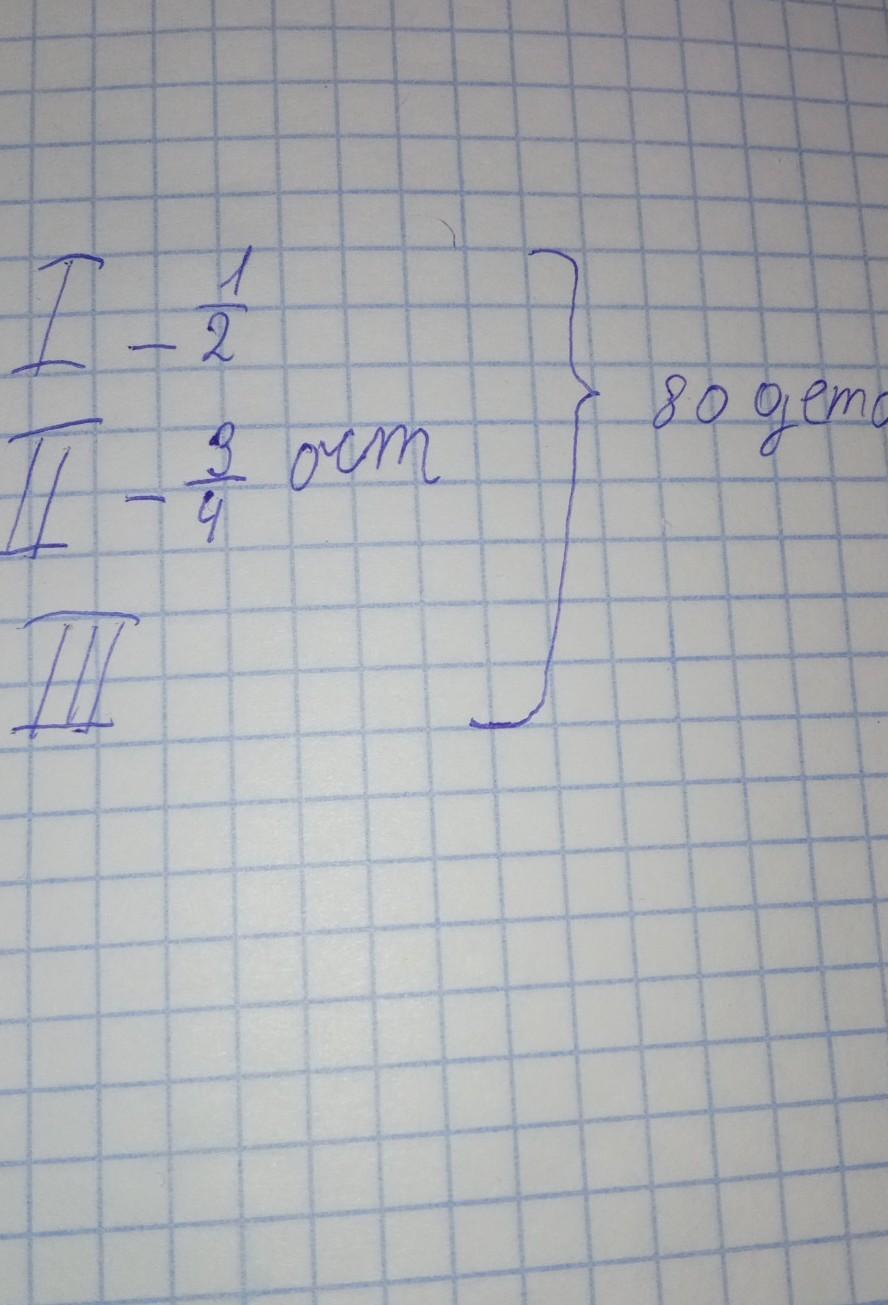 I - 1/2
II - 3/4 ост
III
80 дета